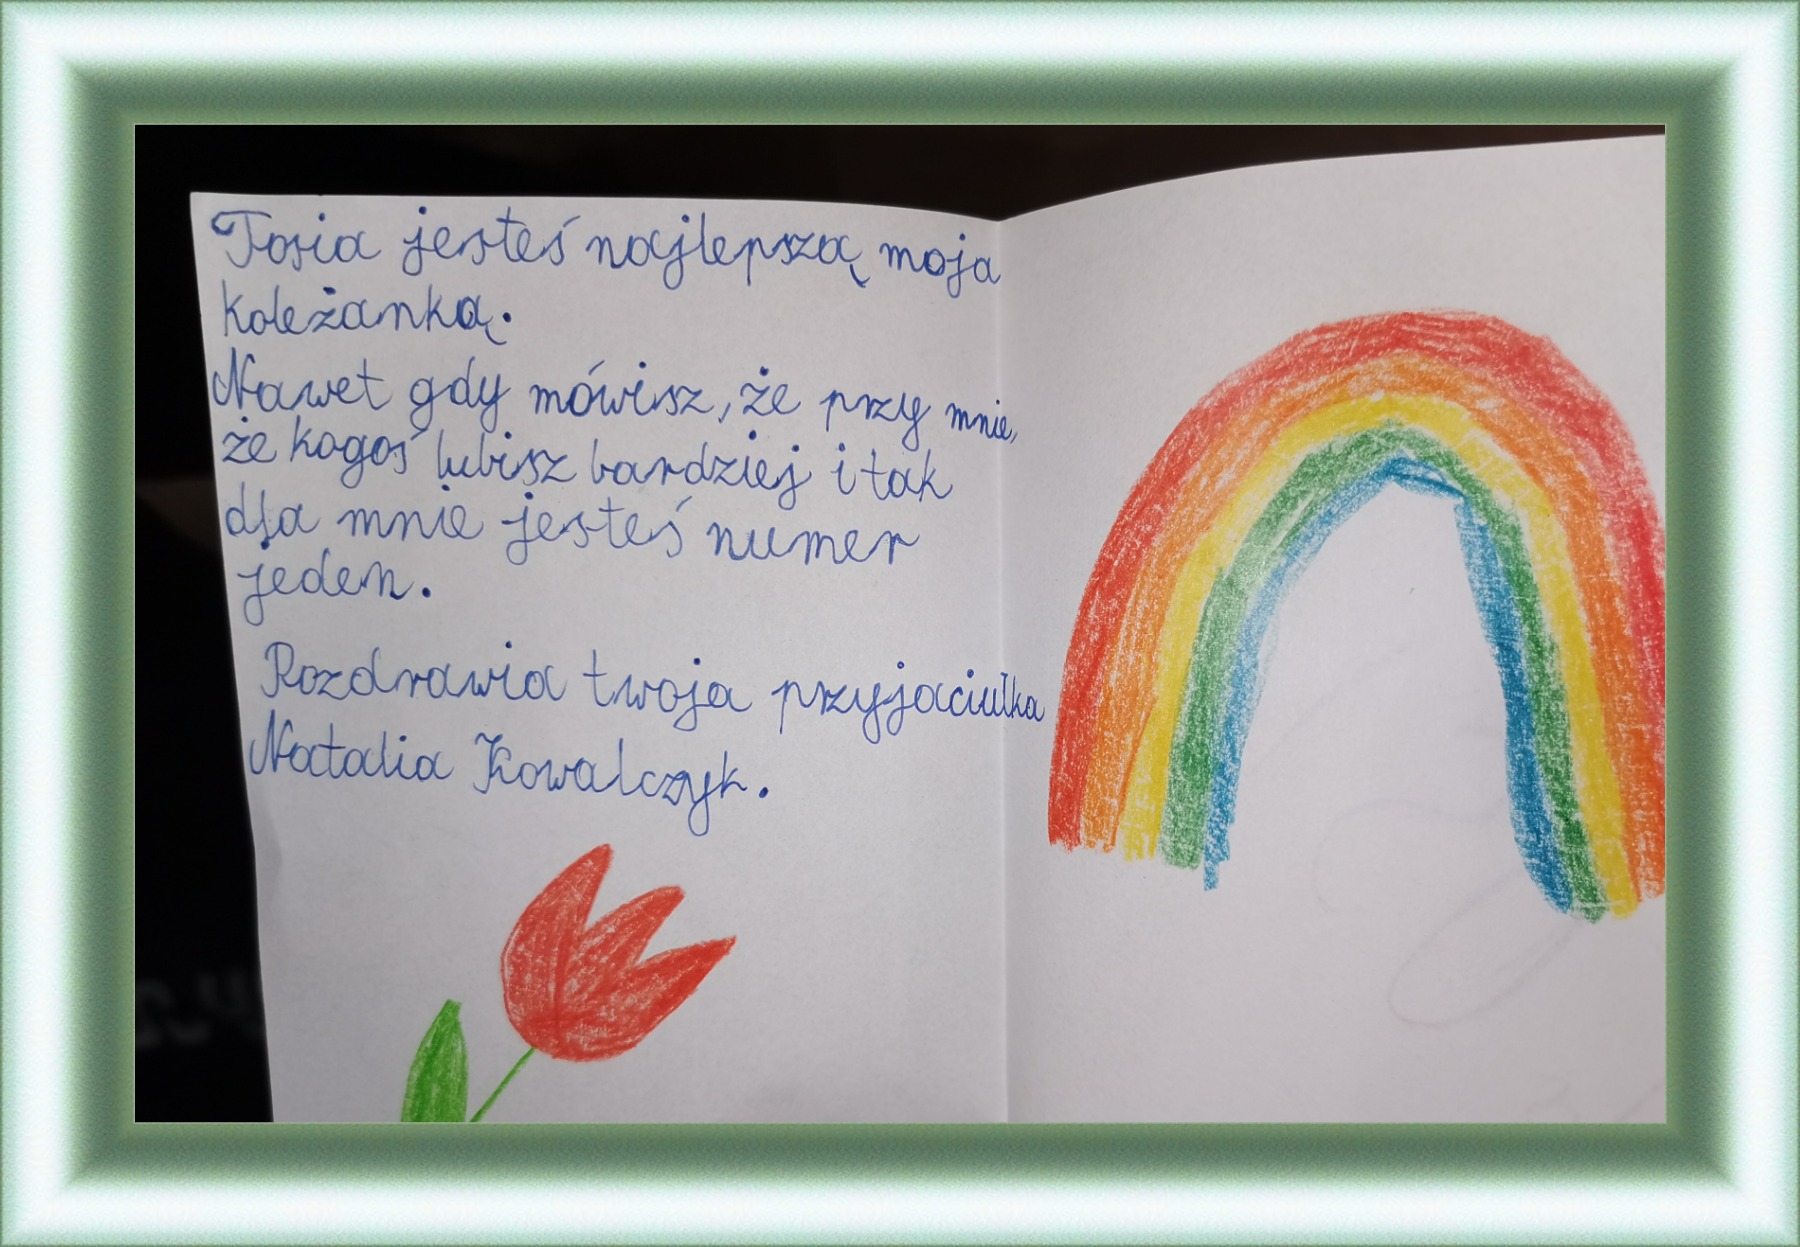 Tosia jesteś najlepszą moja
koleżanką.
Nawet gdy mówisz, że przy mnie,
że kogoś lubisz bardziej i tak
dla mnie jesteś numer
jeden.
Pozdrawia twoja przyjaciułka
Natalia Kowalczyk.